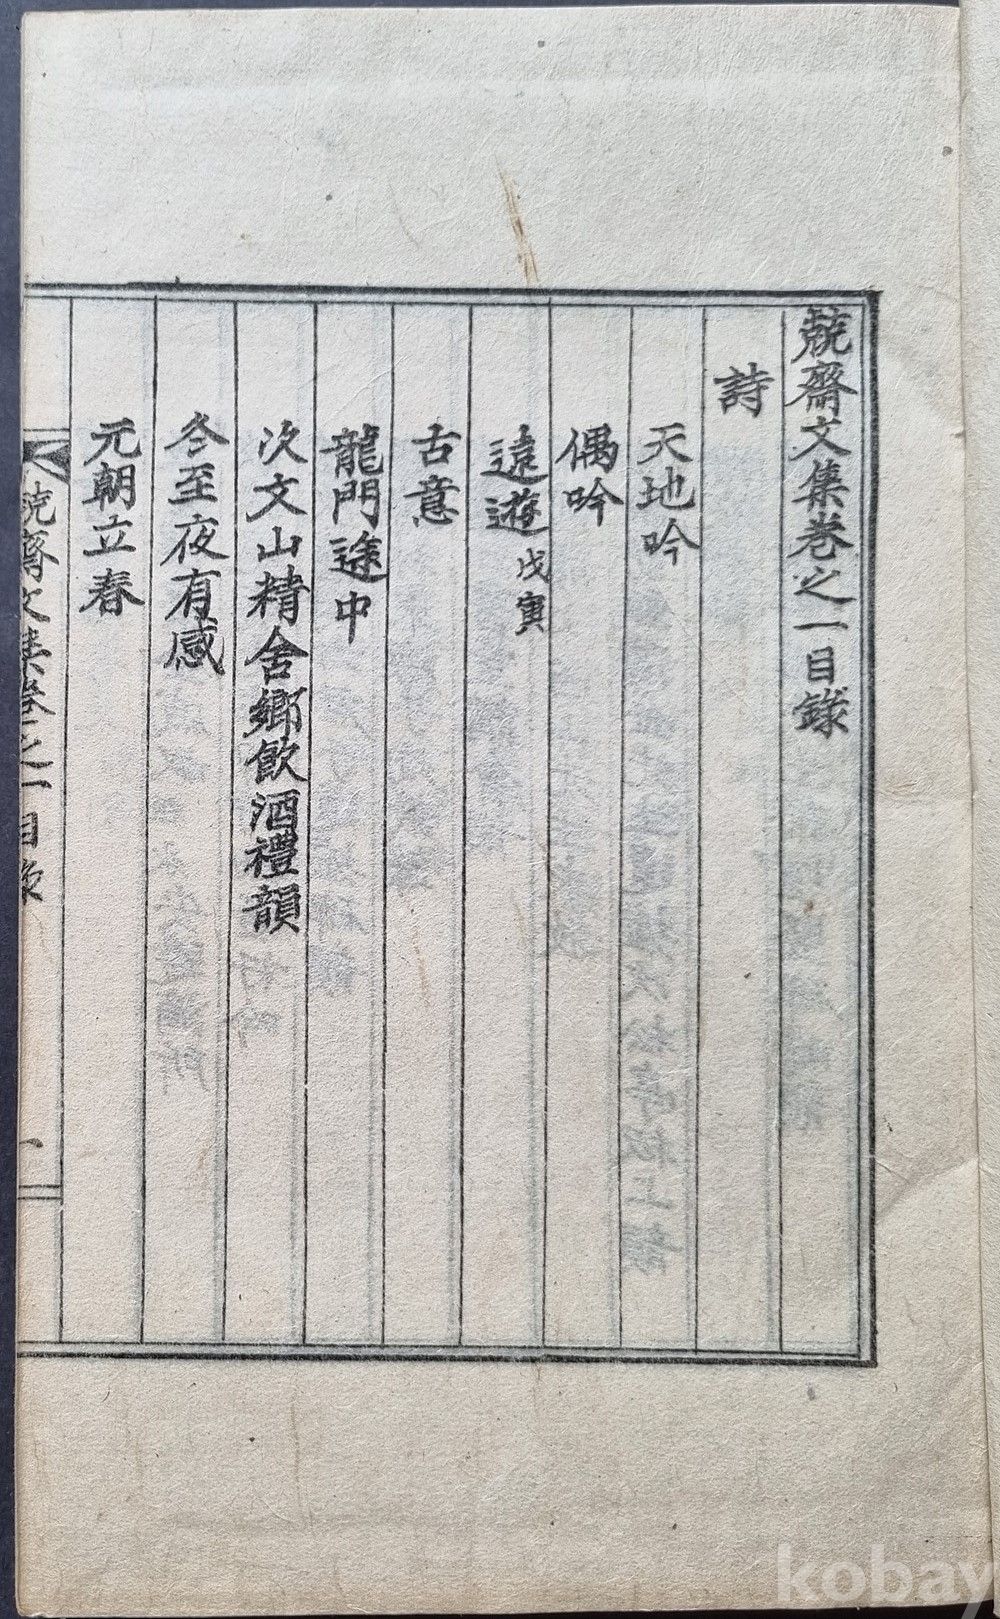 兢齋文集卷之一目錄
詩
天地吟
偶吟
遠遊 戊寅
古意
龍門途中
次文山精舍鄉飮酒禮韻
冬至夜有感
元朝立春
兢齋文集卷之一 目錄 一
kobay